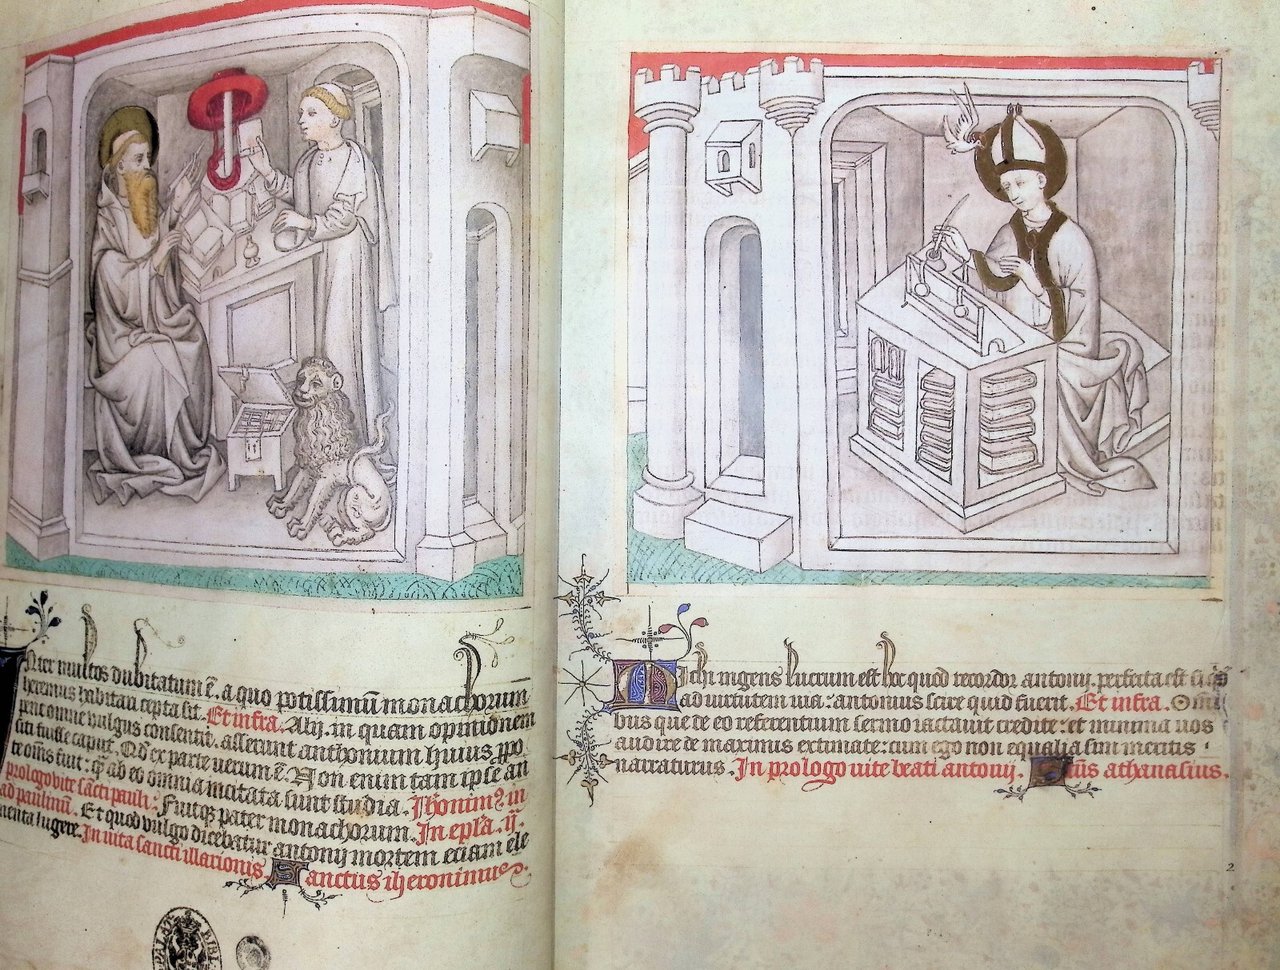 Nter multos dubitatum ē. a quo potissimū monachorum
heremus habitari cepta sit. Et infra. Alij. in quam opinionem
omne vulgus consentit. asserunt anthonium huius ppo
siti fuisse caput. Qd ex parte verum ē. Non enim tam ipse an
te oms fuit: q ab eo omnia incitata sunt studia. Jheronim9 in
prologo vite sancti pauli: Fuitq pater monachorum. In epla. ij.
ad paulinū. Et quod vulgo dicebatur antonij mortem eciam ele
menta lugere. In vita sancti illarionis. Sanctus iheronimus.
Michi ingens lucrum est hoc quod recordor antonij. perfecta est siqdem
ad virtutem via: antonius scire quid fuerit. Et infra. Omi
bus que de eo referentium sermo iactauit credite: et minima vos
audire de maximis extimate: cum ego non equalia sim meritis
narraturus. In prologo vite beati antonij. Scūs athanasius.
2
PALAT BIBL